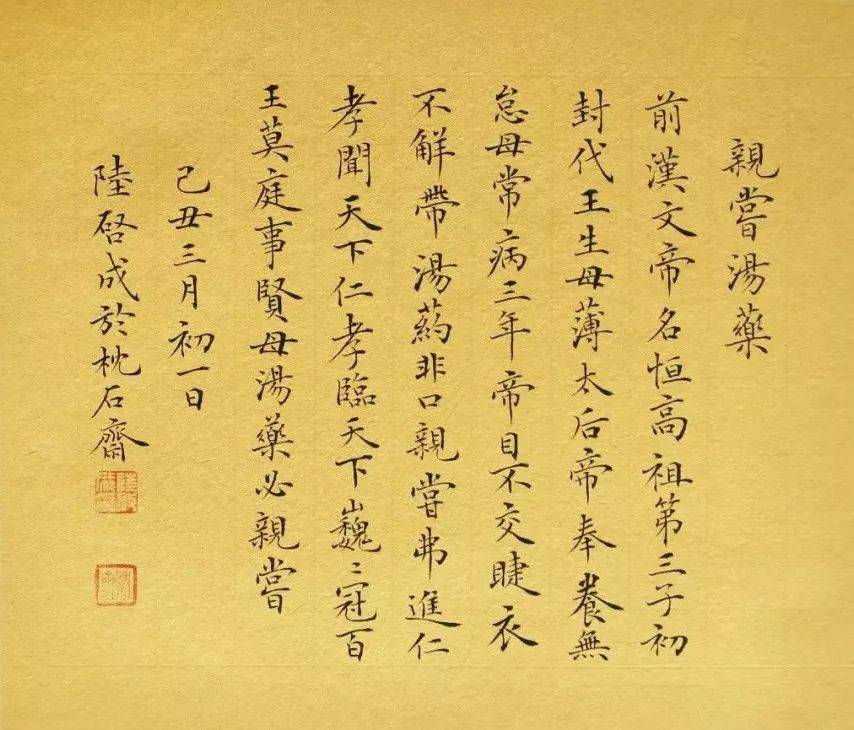 親嘗湯藥
前漢文帝名恒高祖第三子初
封代王生母薄太后帝奉養無
怠母常病三年帝目不交睫衣
不解帶湯葯非口親嘗弗進仁
孝聞天下仁孝臨天下巍〻冠百
王莫庭事賢母湯藥必親嘗
己丑三月初一日
陸啓成於枕石齋